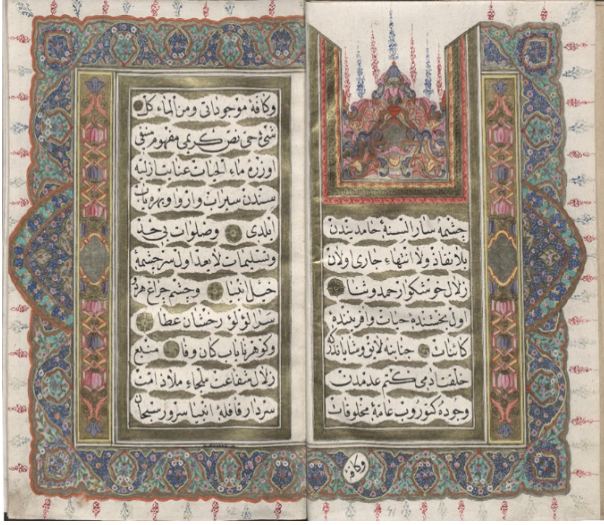 چشمه سار السنهٔ حامدیتدن
بلا نفاد ولا انتهاء جاری اولان
زلال خوشکوار حمد وثنا
اول بخشندهٔ حیات وآفرینندهٔ
کائنات جنابنه لایق
کتم عدمدن
وجوده کتوروب عامهٔ مخلوقات
وکافهٔ
وکافهٔ موجوداتی ومن الماء کل
شئ حی نص کریمی مفهوم منیفی
اوزره ماء الحیات
سندن سیراب واروا وبهره یاب
ایلدی وصلوات بی حد
وتسلیمات لا یعد اول سرچشمهٔ
خیل انبیا وچشم چراغ هردو
سرا لؤلؤ رخشان عطا
وکوهر نایاب کان وفا منبع
زلال شفاعت ملجاء ملاذ امت
سردار قافلهٔ انبیا سرور